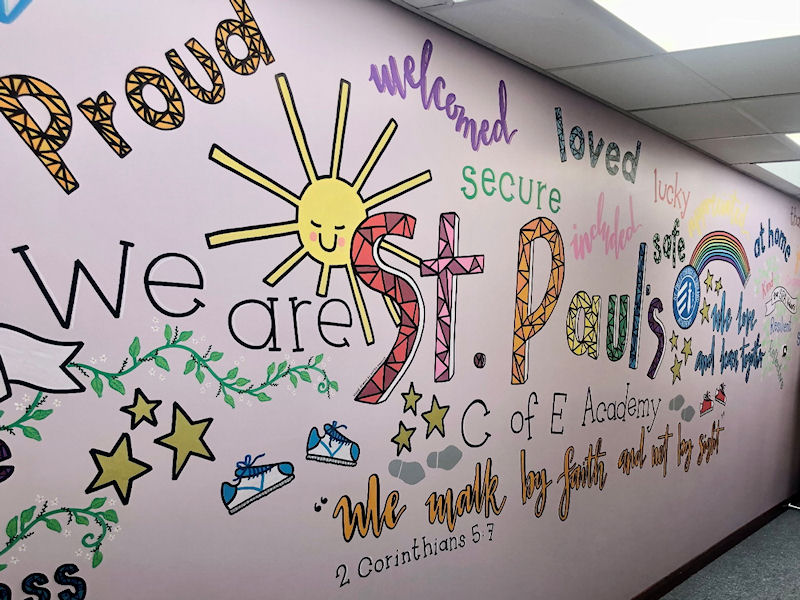 Proud
welcomed
loved
secure
lucky
included
safe
at home
We are St. Paul's
C of E Academy
we love
and learn together
Resilient
"We walk by faith and not by sight
2 Corinthians 5:7
ess